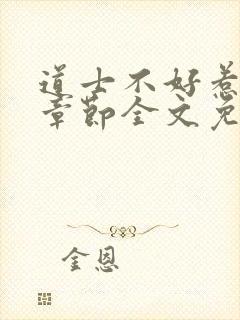 道士不好惹
章节全文免
金恩